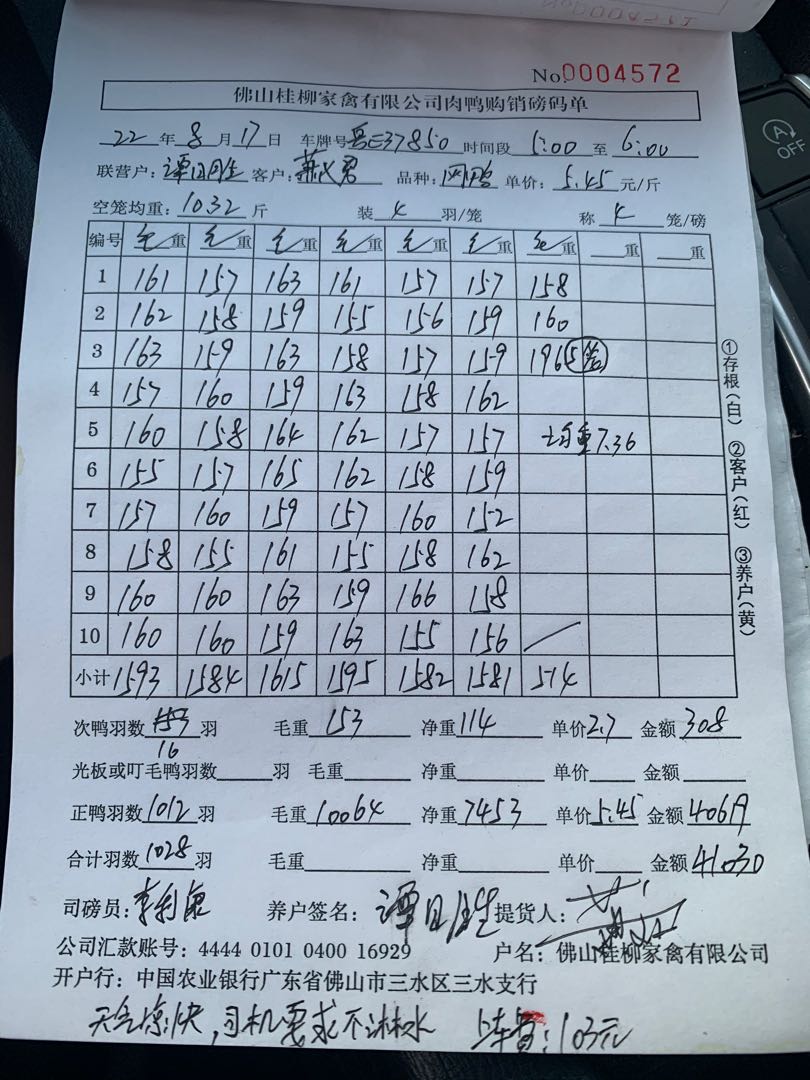 No.0004572
佛山桂柳家禽有限公司肉鸭购销磅码单
22年8月17日 车牌号粤E37850 时间段 5:00 至 6:00
联营户:谭日生 客户: 品种: 单价:5.45元/斤
空笼均重:10.32斤 装4羽/笼 称4笼/磅
编号 毛重 毛重 毛重 毛重 毛重 毛重 毛重 重 重
1 161 157 163 161 157 157 158
2 162 158 159 155 156 159 160
3 163 159 163 158 157 159 196 5笼
4 157 160 159 163 158 162
5 160 158 164 162 157 157 均重7.36
6 155 157 165 162 158 159
7 157 160 159 157 160 152
8 158 155 161 155 158 162
9 160 160 163 159 166 158
10 160 160 159 163 155 156
小计 1593 1584 1615 1595 1582 1581 514
次鸭羽数 153 羽 毛重 153 净重 114 单价 2.7 金额 308
16
光板或叮毛鸭羽数 羽 毛重 净重 单价 金额
正鸭羽数 1012 羽 毛重 10064 净重 7453 单价 5.45 金额 40619
合计羽数 1028 羽 毛重 净重 单价 金额 41030
司磅员: 养户签名:谭日生 提货人:
公司汇款账号:4444 0101 0400 16929 户名:佛山桂柳家禽有限公司
开户行:中国农业银行广东省佛山市三水区三水支行
天气凉快,司机要求不淋水 上车费:103元
①存根(白) ②客户(红) ③养户(黄)
A
OFF